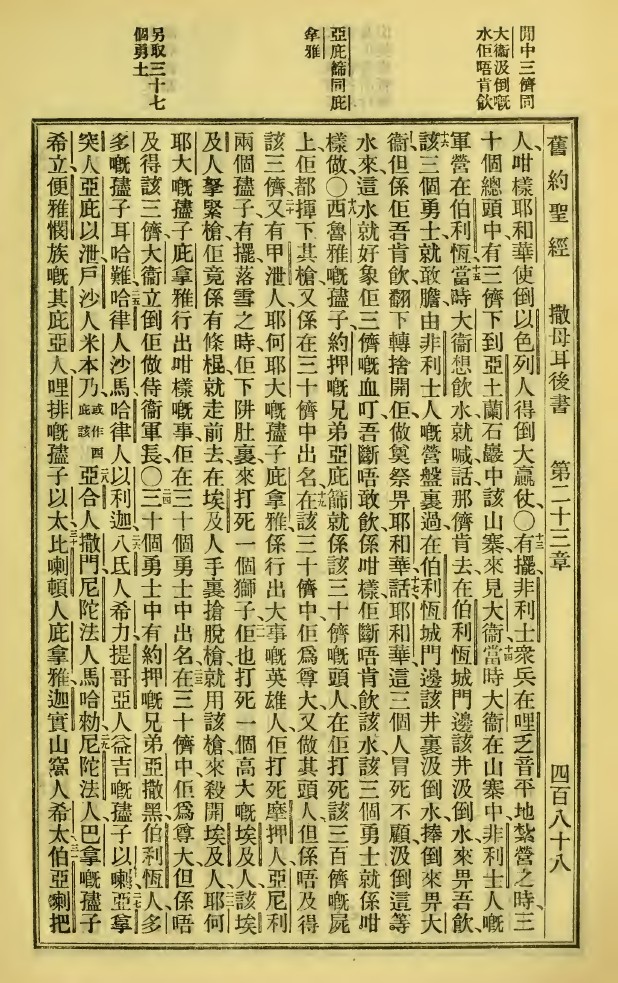 閒中三儕同
大衞汲倒嘅
水佢唔肯飲
亞庇篩同庇
拿雅
另取三十七
個勇士
舊約聖經 撒母耳後書 第二十三章 四百八十八
人、咁樣耶和華使倒以色列人得倒大贏仗、〇十三有擺、非利士衆兵在哩乏音平地紮營之時、三
十個總頭中有三儕下到亞土蘭石巖中該山寨來見大衞、十四當時大衞在山寨中、非利士人嘅
軍營在伯利恆、十五當時大衞想飲水、就喊話、那儕肯去在伯利恆城門邊該井汲倒水來畀吾飲、
十六該三個勇士就敢膽由非利士人嘅營盤裏過、在伯利恆城門邊該井裏汲倒水、捧倒來畀大
衞、但係佢吾肯飲、翻下轉捨開、佢做奠祭畀耶和華、十七話、耶和華、這三個人冒死不顧、汲倒這等
水來、這水就好象佢三儕嘅血叮、吾斷唔敢飲、係咁樣佢斷唔肯飲該水、該三個勇士就係咁
樣做、〇十八西魯雅嘅孻子、約押嘅兄弟亞庇篩就係該三十儕嘅頭人、在佢打死該三百儕嘅屍
上、佢都揮下其槍、又係在三十儕中出名、十九在該三十儕中佢爲尊大、又做其頭人、但係唔及得
該三儕、二十又有甲泄人、耶何耶大嘅孻子庇拿雅、係行出大事嘅英雄人、佢打死摩押人、亞尼利
兩個孻子、有擺落雪之時、佢下阱肚裏來打死一個獅子、二一佢也打死一個高大嘅埃及人、該埃
及人拏緊槍、佢竟係有條棍、就走前去、在埃及人手裏搶脫槍、就用該槍來殺開埃及人、二二耶何
耶大嘅孻子庇拿雅行出咁樣嘅事、佢在三十個勇士中出名、二三在三十儕中佢爲尊大、但係唔
及得該三儕、大衞立倒佢做侍衞軍長、〇二四三十個勇士中有約押嘅兄弟亞撒黑、伯利恆人多
多嘅孻子耳哈難、二五哈律人沙馬、哈律人以利迦、二六八氐人希力、提哥亞人益吉嘅孻子以喇、二七亞拿
突人亞庇以泄、戶沙人米本乃、或作四庇該二八亞合人撒門、尼陀法人馬哈勑、二九尼陀法人、巴拿嘅孻子
希立、便雅憫族嘅其庇亞人、哩排嘅孻子以太、三十比喇頓人庇拿雅、迦實山窩人希太、三一伯亞喇把